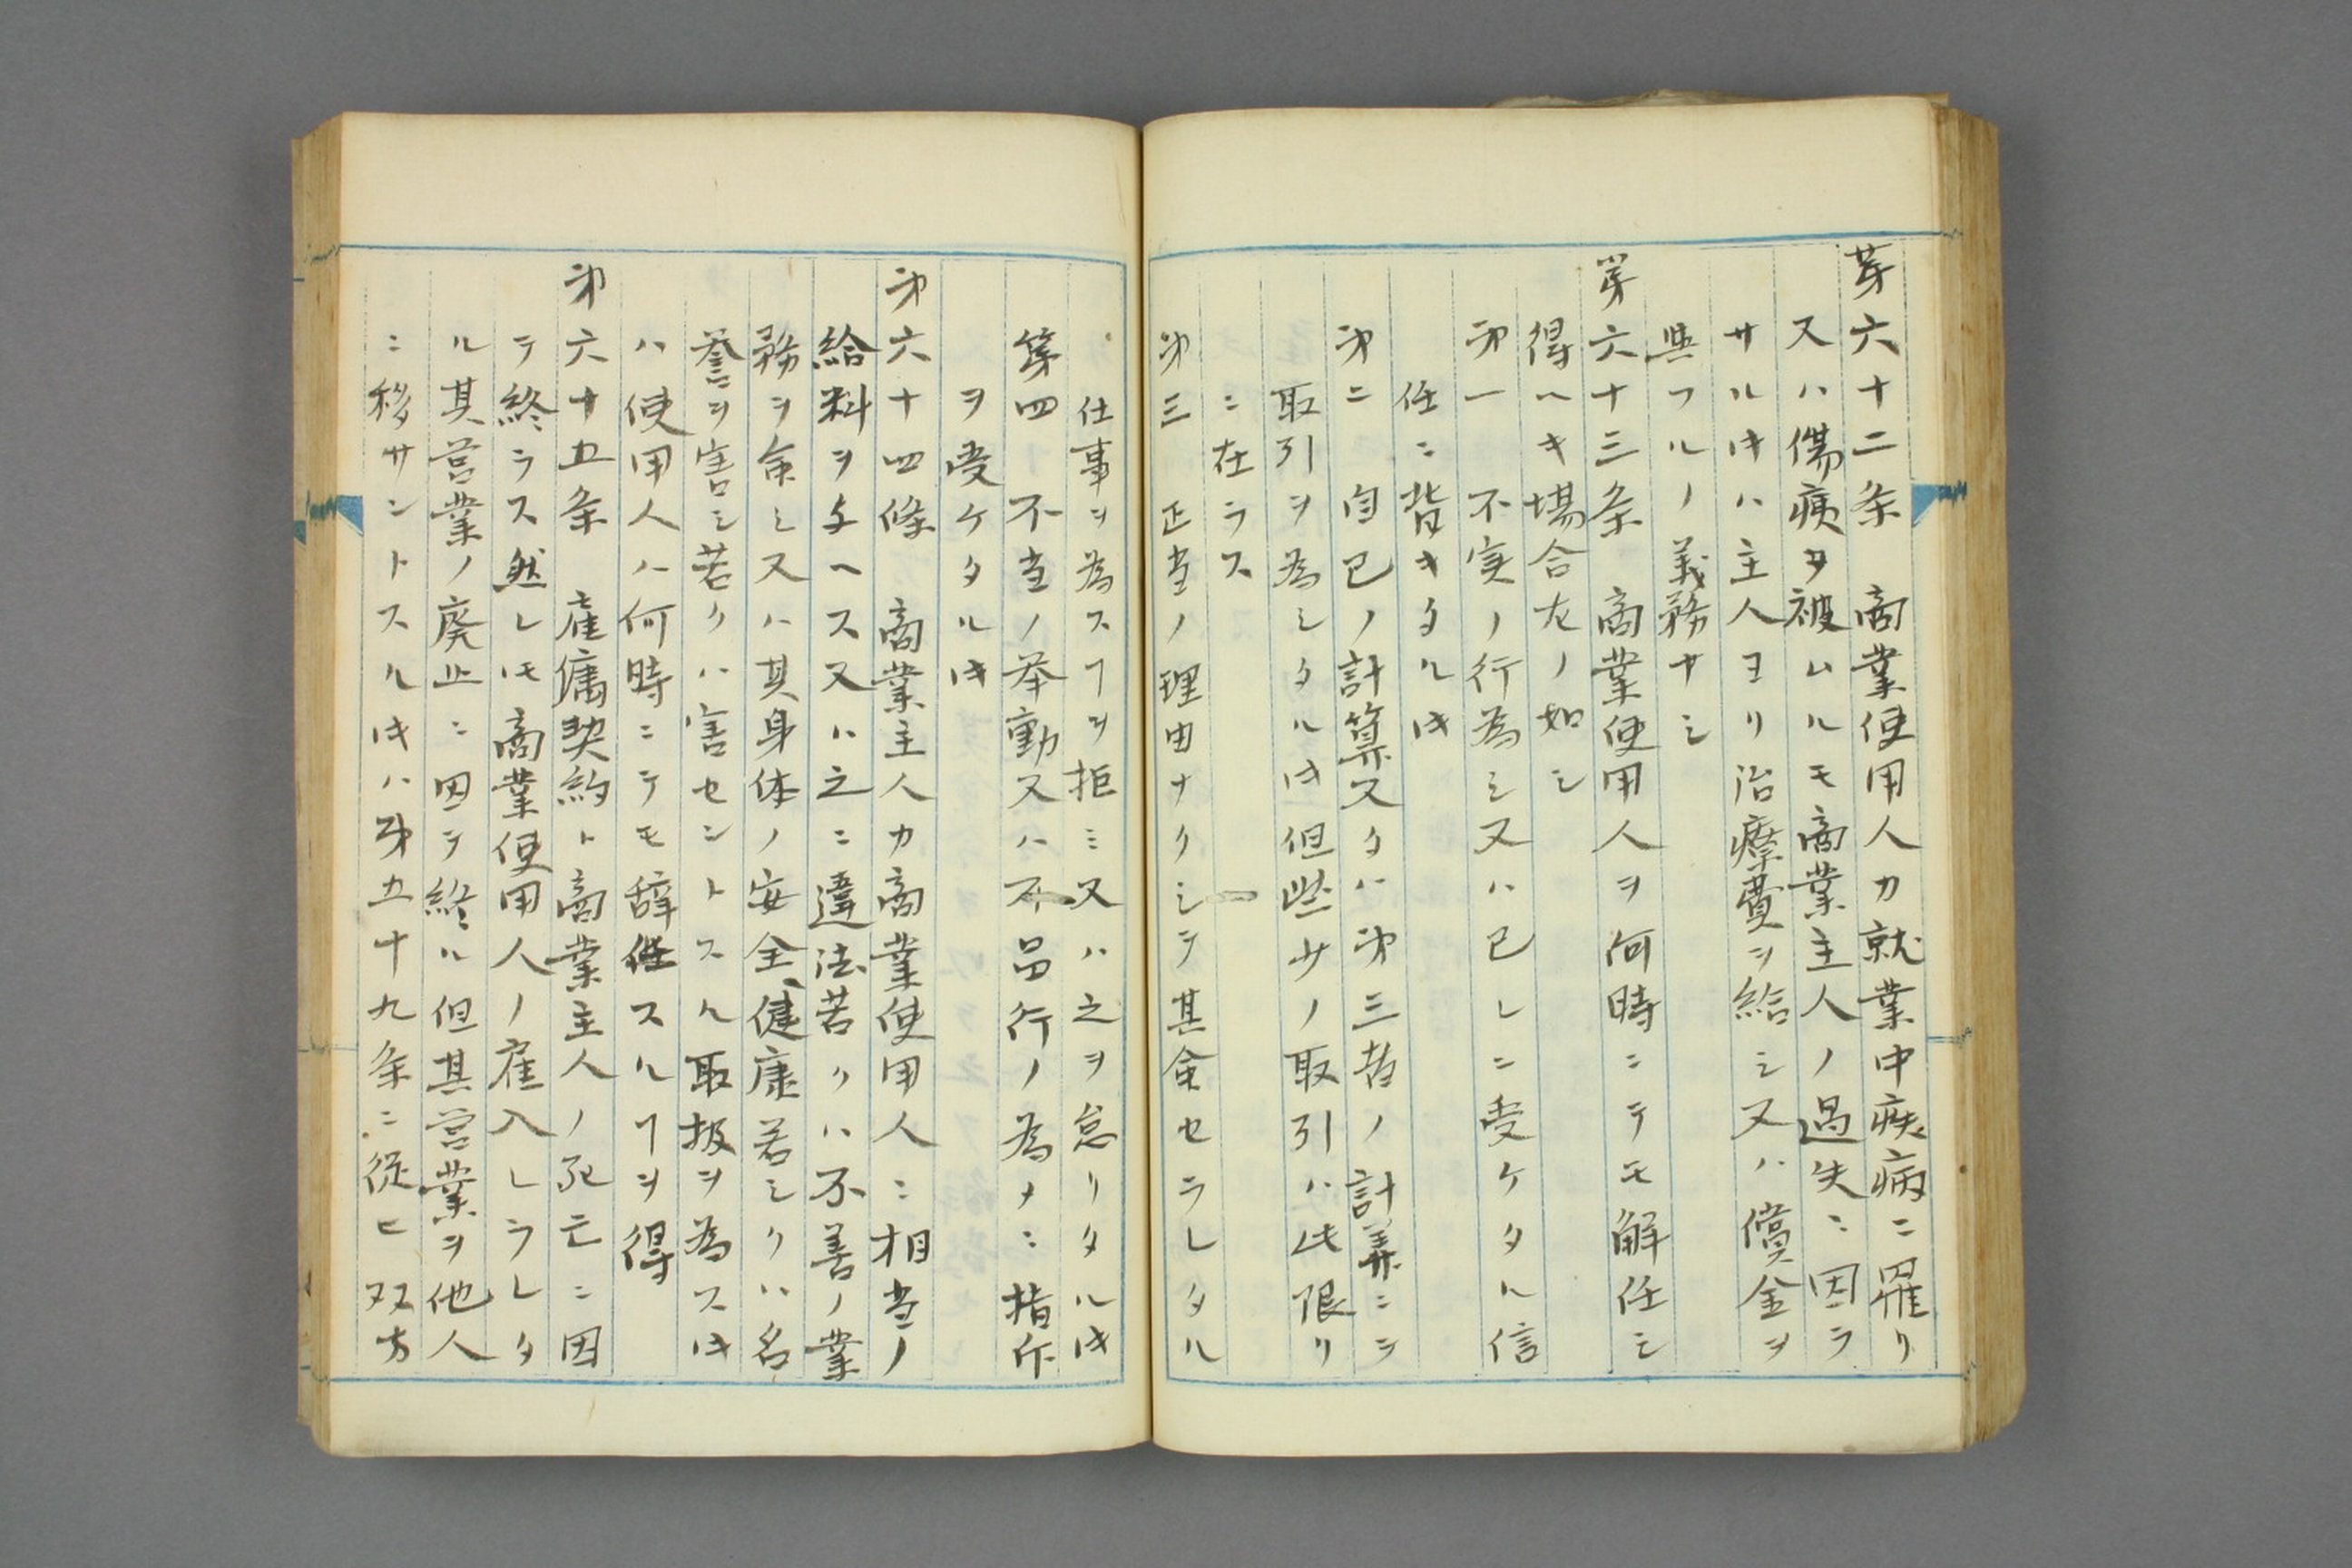 第六十二条　商業使用人カ就業中疾病ニ罹リ
又ハ傷痍ヲ被ムルモ商業主人ノ過失ニ因ラ
サル𪜈ハ主人ヨリ治療費ヲ給シ又ハ償金ヲ
與フルノ義務ナシ
第六十三条　商業使用人ヲ何時ニテモ解任シ
得ヘキ場合左ノ如シ
第一　不実ノ行為ヲ為シ又ハ已レニ受ケタル信
任ニ背キタル
第二　自己ノ計算又タハ第三者ノ計算ニテ
取引ヲ為シタル　但些少ノ取引ハ此限リ
ニ在ラス
第三　正当ノ理由ナクシテ其命セラレタル
仕事ヲ為スヿヲ拒ミ又ハ之ヲ怠リタル
第四　不当ノ挙動又ハ不品行ノ為メニ指斥
ヲ受ケタル
第六十四條　商業主人カ商業使用人ニ相当ノ
給料ヲ与ヘス又ハ之ニ違法若クハ不善ノ業
務ヲ命シ又ハ其身体ノ安全、健康若シクハ名
誉ヲ害シ若クハ害セントスル取扱ヲ為ス
ハ使用人ハ何時ニテモ辞任スルヿヲ得
第六十五条　雇傭契約ト商業主人ノ死亡ニ因
テ終ラス然レ𪜈商業使用人ノ雇入レラレタ
ル其営業ノ廃止ニ因テ終ル但其営業ヲ他人
ニ移サントスル　ハ第五十九条ニ従ヒ双方